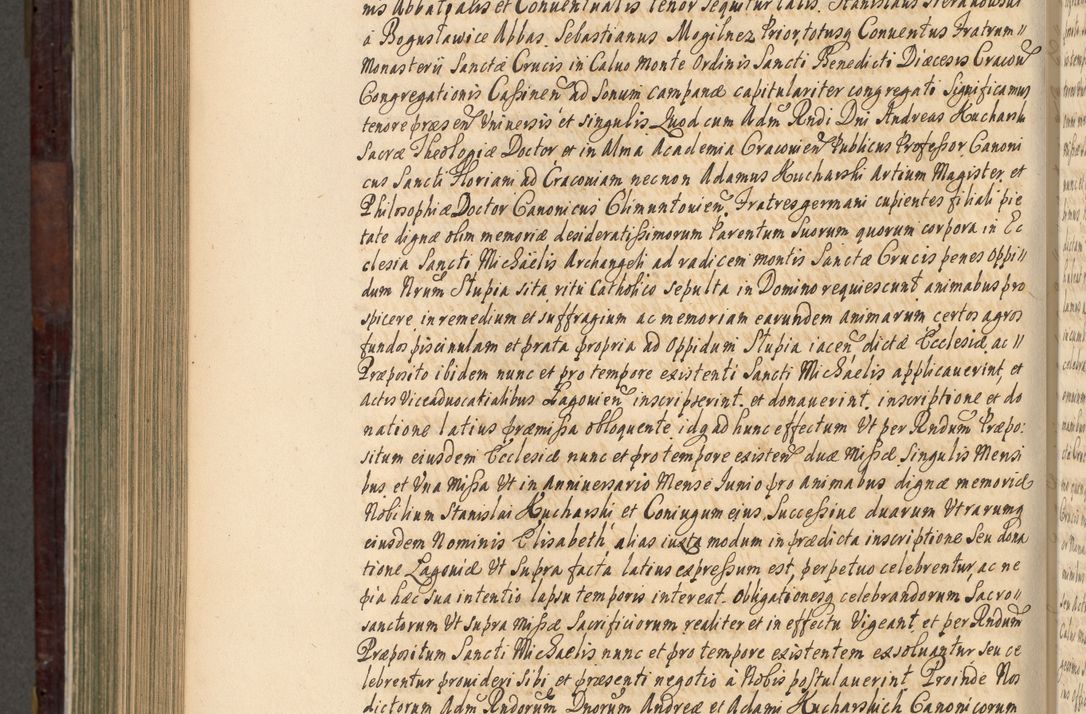 nis Abbatialis et Conventualis tenor sequitur talis. Stanislaus
à Boguslawice Abbas. Sebastianus Mogilnez Prior, totusq Conventus Fratrum //
Monasterii Sanctæ Crucis in Calvo Monte Ordinis Sancti Benedicti Diæcesis Cracovien
Congregationis Cassinen ad sonum campanæ capitulariter congregati Significamus
tenore præsen Universis et singulis. Quod cum Adm Rndi Dni Andreas Kucharski
Sacræ Theologiæ Doctor et in Alma Academia Cracovien Publicus Professor, Canoni
cus Sancti Floriani ad Cracoviam necnon Adamus Kucharski Artium Magister, et
Philosophiæ Doctor Canonicus Climuntovien. Fratres germani cupientes filiali pie
tate dignæ olim memoriæ desideratissimorum Parentum Suorum quorum corpora in Ec
clesia Sancti Michaëlis Archangeli ad radicem montis Sanctæ Crucis penes Oppi //
dum Nrum Stupia sita ritu Catholico sepulta in Domino requiescunt animabus pro
spicere in remedium et suffragium ac memoriam earundem animarum certos agros
fundos piscinulam et prata propria ad Oppidum Stupia iacen dictæ Ecclesiæ, ac //
Præposito ibidem nunc et pro tempore existenti Sancti Michaëlis applicaverint, et
Actis Viceadvocatialibus Lagovien inscripserint. et donaverint. inscriptione et do
natione latius præmissa obloquente idq ad hunc effectum Ut per Rndum Præpo:
situm eiusdem Ecclesiæ nunc et pro tempore existen duæ Missæ Singulis Mensi
bus et Una Missa Ut in Anniversario Mense Junio pro Animabus dignæ memoriæ
Nobilium Stanislai Kucharski et Coniugum eius. Successive duarum Utrarumq
eiusdem Nominis Elisabeth alias iuxta modum in prædicta inscriptione seu dona
tione Lagoviæ Ut Supra facta latius expressum est, perpetuo celebrentur, ac ne
pia hæc Sua intentio lapsu temporis intereat. Obligationesq celebrandorum Sacro //
sanctorum Ut supra Missæ Sacrificiorum realiter et in effectu Vigeant et per Rndum
Præpositum Sancti Michaëlis nunc et pro tempore existentem exsolvantur seu ce
lebrentur provideri sibi et præsenti negotio à Nobis postulaverint Proinde Nos
dictorum Adm Rndorum Dnorum Andreæ et Adami Kucharskich Canonicorum